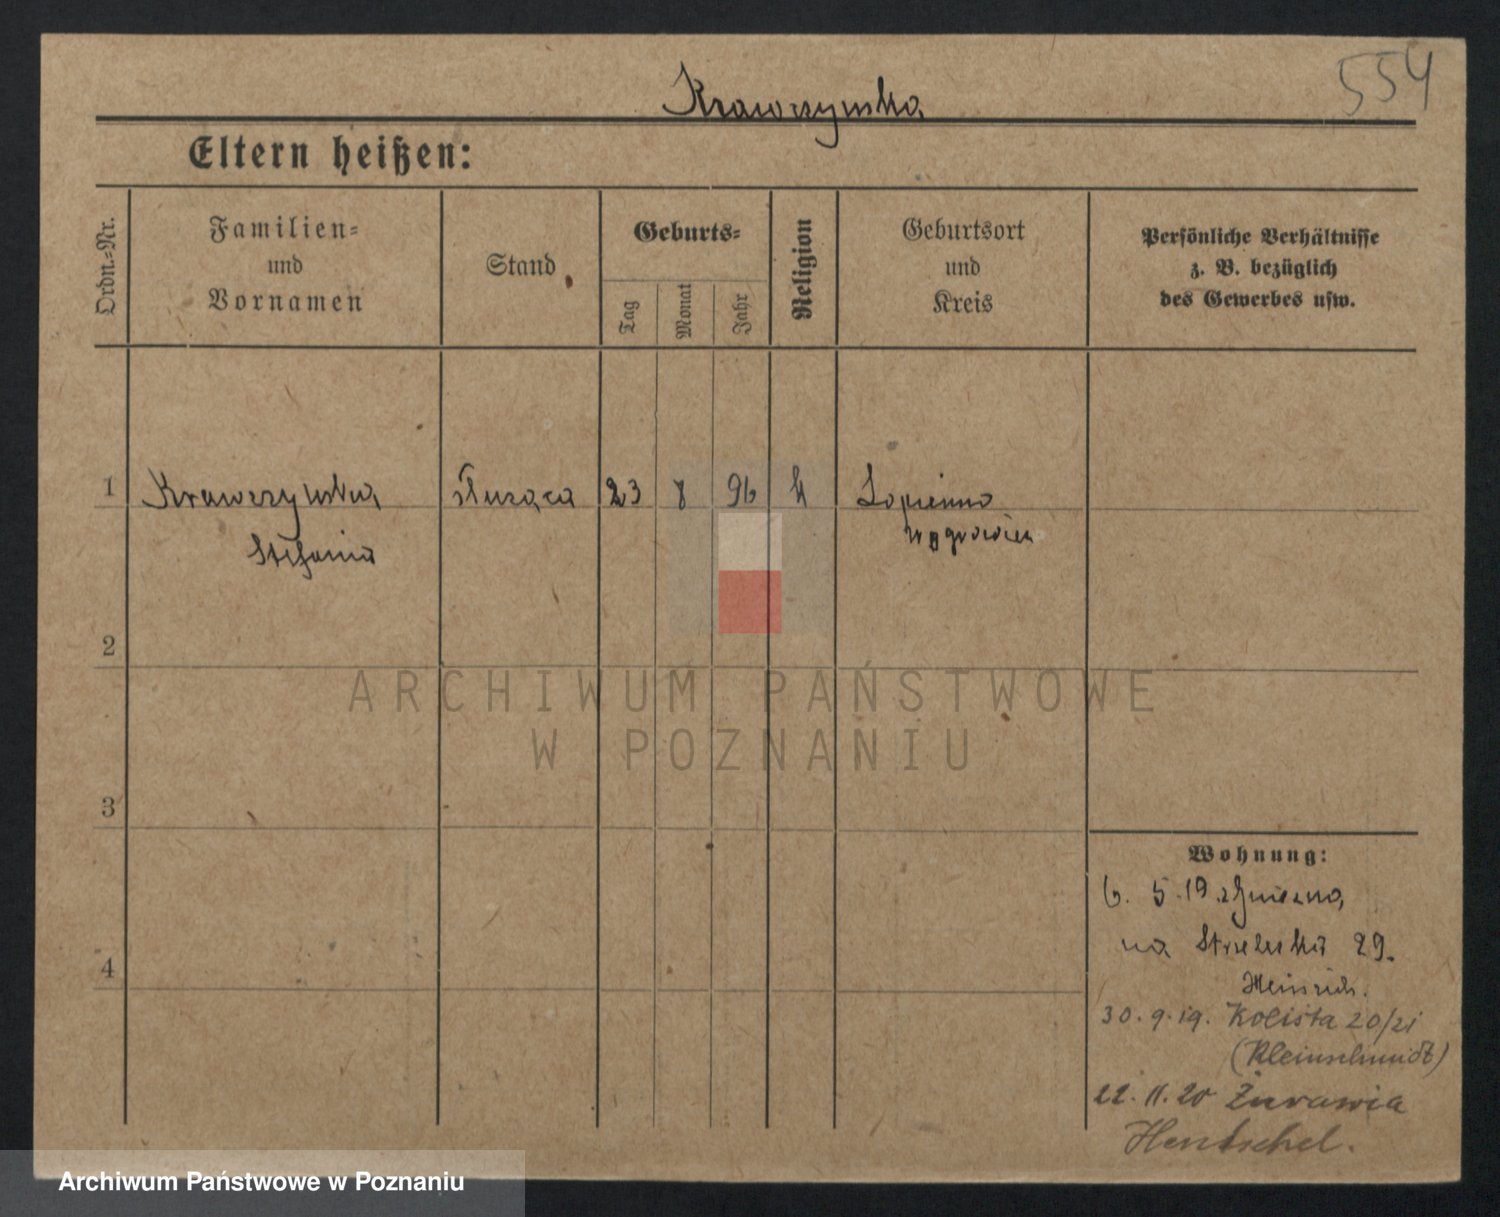 554
Krawczynska
Eltern heißen:
Ordn.-Nr.
Familien-
und
Vornamen
Stand
Geburts-
Tag
Monat
Jahr
Religion
Geburtsort
und
Kreis
Persönliche Verhältnisse
z. B. bezüglich
des Gewerbes usw.
1
Krawczynska
służąca
23
8
96
k
Łopienno
Stefania
Wągrowiec
2
3
4
Wohnung:
6. 5. 19. z Gniezna,
na Strzelecka 29.
Heinrich.
30. 9. 19. Kolista 20/21
(Kleinschmidt)
22. 11. 20 Żurawia
Hentschel.
ARCHIWUM PAŃSTWOWE
W POZNANIU
Archiwum Państwowe w Poznaniu